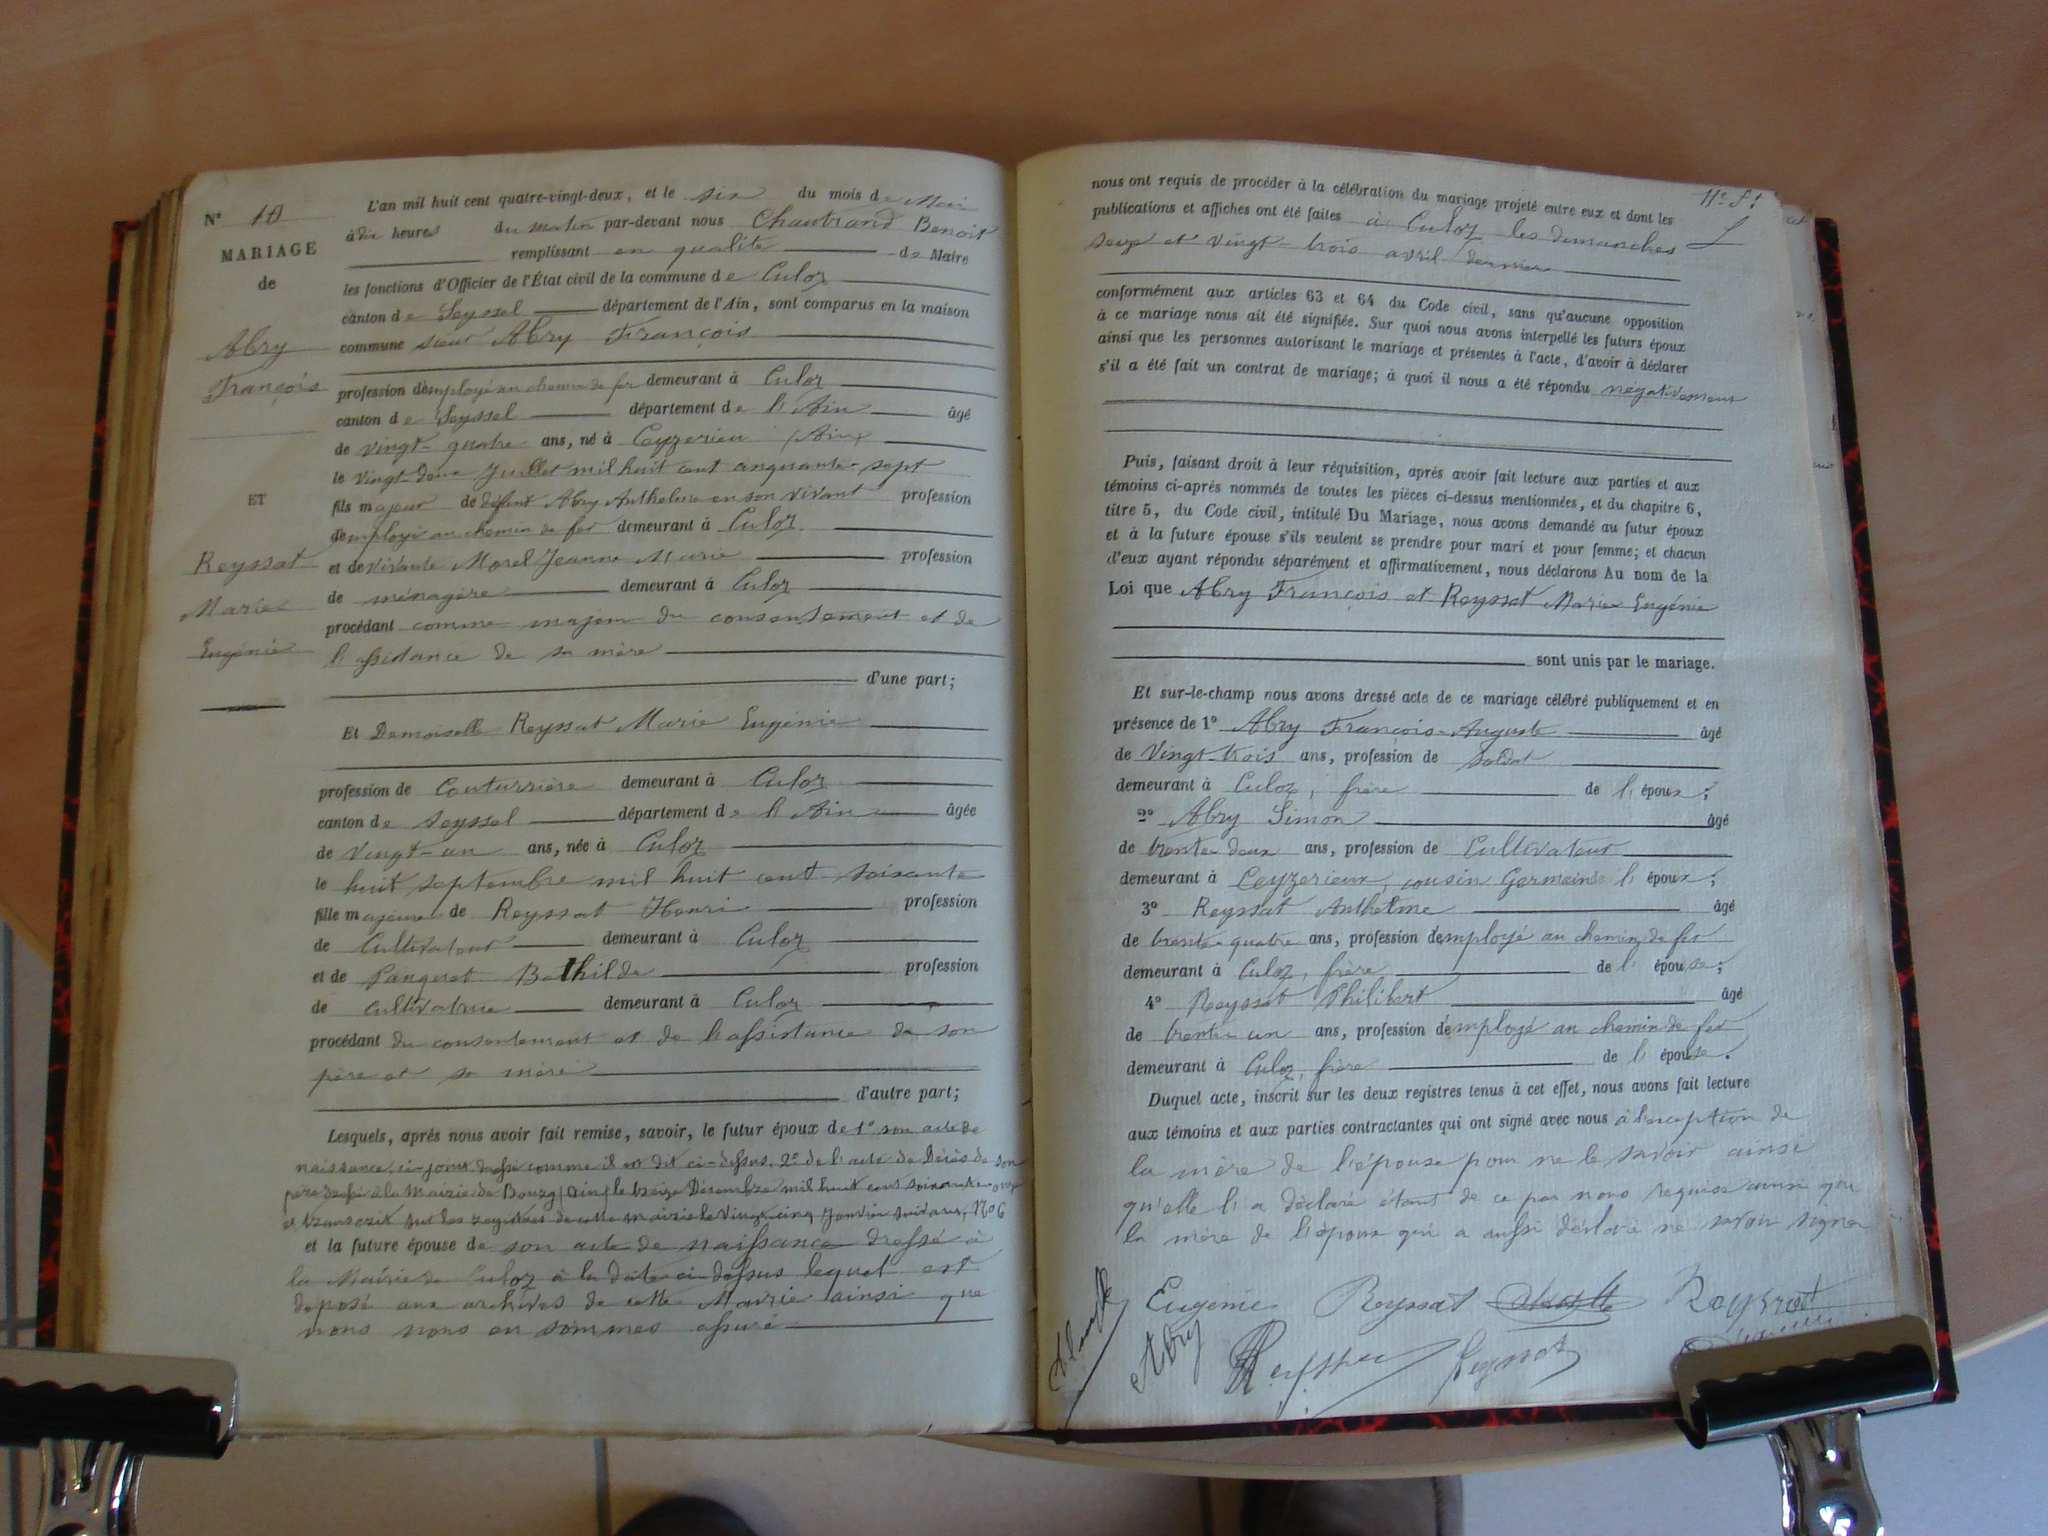 N° 10
MARIAGE
de
Abry
François
ET
Reyssat
Marie
Eugénie
L'an mil huit cent quatre-vingt-deux, et le six du mois de Mai
à dix heures du matin par-devant nous Chautrand Benoit
remplissant en qualité de Maire
les fonctions d'Officier de l'État civil de la commune de Culoz
canton de Seyssel département de l'Ain, sont comparus en la maison
commune sieur Abry François
profession d'employé au chemin de fer demeurant à Culoz
canton de Seyssel département de l'Ain âgé
de vingt-quatre ans, né à Ceyzerieu (Ain)
le vingt-deux Juillet mil huit cent cinquante-sept
fils majeur de défunt Abry Anthelme en son vivant profession
d'employé au chemin de fer demeurant à Culoz
et de vivante Morel Jeanne Marie profession
de ménagère demeurant à Culoz
procédant comme majeur du consentement et de
l'assistance de sa mère
d'une part;
Et Demoiselle Reyssat Marie Eugénie
profession de Couturrière demeurant à Culoz
canton de Seyssel département de l'Ain âgée
de vingt-un ans, née à Culoz
le huit septembre mil huit cent soixante
fille majeure de Reyssat Henri profession
de Cultivateur demeurant à Culoz
et de Pangerot Bathilde profession
de cultivatrice demeurant à Culoz
procédant du consentement et de l'assistance de son
père et sa mère
d'autre part;
Lesquels, après nous avoir fait remise, savoir, le futur époux de 1° son acte de
naissance ci-joint dressé comme il est dit ci-dessus, 2° de l'acte de Décès de son
père dressé à la Mairie de Bourg (Ain) le treize Décembre mil huit cent soixante-onze
et transcrit sur les registres de cette mairie le vingt-cinq Janvier suivant, N° 6
et la future épouse de son acte de naissance dressé à
la Mairie de Culoz à la date ci-dessus lequel est
déposé aux archives de cette Mairie ainsi que
nous nous en sommes assuré
11e ft
nous ont requis de procéder à la célébration du mariage projeté entre eux et dont les
publications et affiches ont été faites à Culoz les dimanches
seize et vingt-trois avril dernier
conformément aux articles 63 et 64 du Code civil, sans qu'aucune opposition
à ce mariage nous ait été signifiée. Sur quoi nous avons interpellé les futurs époux
ainsi que les personnes autorisant le mariage et présentes à l'acte, d'avoir à déclarer
s'il a été fait un contrat de mariage; à quoi il nous a été répondu négativement
Puis, faisant droit à leur réquisition, après avoir fait lecture aux parties et aux
témoins ci-après nommés de toutes les pièces ci-dessus mentionnées, et du chapitre 6,
titre 5, du Code civil, intitulé Du Mariage, nous avons demandé au futur époux
et à la future épouse s'ils veulent se prendre pour mari et pour femme; et chacun
d'eux ayant répondu séparément et affirmativement, nous déclarons Au nom de la
Loi que Abry François et Reyssat Marie Eugénie
sont unis par le mariage.
Et sur-le-champ nous avons dressé acte de ce mariage célébré publiquement et en
présence de 1° Abry François-Auguste âgé
de Vingt-trois ans, profession de soldat
demeurant à Culoz, frère de l'époux;
2° Abry Simon âgé
de trente-deux ans, profession de Cultivateur
demeurant à Ceyzerieux, cousin Germain de l'époux;
3° Reyssat Anthelme âgé
de trente-quatre ans, profession d'employé au chemin de fer
demeurant à Culoz, frère de l'épouse;
4° Reyssat Philibert âgé
de trente-un ans, profession d'employé au chemin de fer
demeurant à Culoz, frère de l'épouse.
Duquel acte, inscrit sur les deux registres tenus à cet effet, nous avons fait lecture
aux témoins et aux parties contractantes qui ont signé avec nous à l'exception de
la mère de l'épouse pour ne le savoir ainsi
qu'elle l'a déclaré étant de ce par nous requise ainsi que
la mère de l'époux qui a aussi déclaré ne savoir signer
Eugénie Reyssat Reyssat
Abry Reyssat